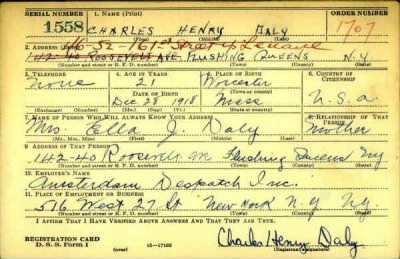 SERIAL NUMBER 1. NAME (Print) ORDER NUMBER
1558 CHARLES HENRY DALY 1707
46-52-161st Street
2. ADDRESS (Print)
142-40 ROOSEVELT AVE. FLUSHING QUEENS N.Y.
(Number and street or R. F. D. number) (Town) (County) (State)
3. TELEPHONE 4. AGE IN YEARS 5. PLACE OF BIRTH 6. COUNTRY OF CITIZENSHIP
None 21 Worcester
DATE OF BIRTH (Town or county)
Dec 28 1918 Mass U.S.a.
(Exchange) (Number) (Mo.) (Day) (Yr.) (State or country)
7. NAME OF PERSON WHO WILL ALWAYS KNOW YOUR ADDRESS 8. RELATIONSHIP OF THAT PERSON
Mrs. Ella J. Daly Mother
(Mr., Mrs., Miss) (First) (Middle) (Last)
9. ADDRESS OF THAT PERSON
142-40 Roosevelt ave Flushing Queens NY
(Number and street or R. F. D. number) (Town) (County) (State)
10. EMPLOYER'S NAME
Amsterdam Despatch Inc.
11. PLACE OF EMPLOYMENT OR BUSINESS
516 West 27 St New York N.Y. N.Y.
(Number and street or R. F. D. number) (Town) (County) (State)
I AFFIRM THAT I HAVE VERIFIED ABOVE ANSWERS AND THAT THEY ARE TRUE.
REGISTRATION CARD
D. S. S. Form 1 (over) Charles Henry Daly
(Registrant's signature)